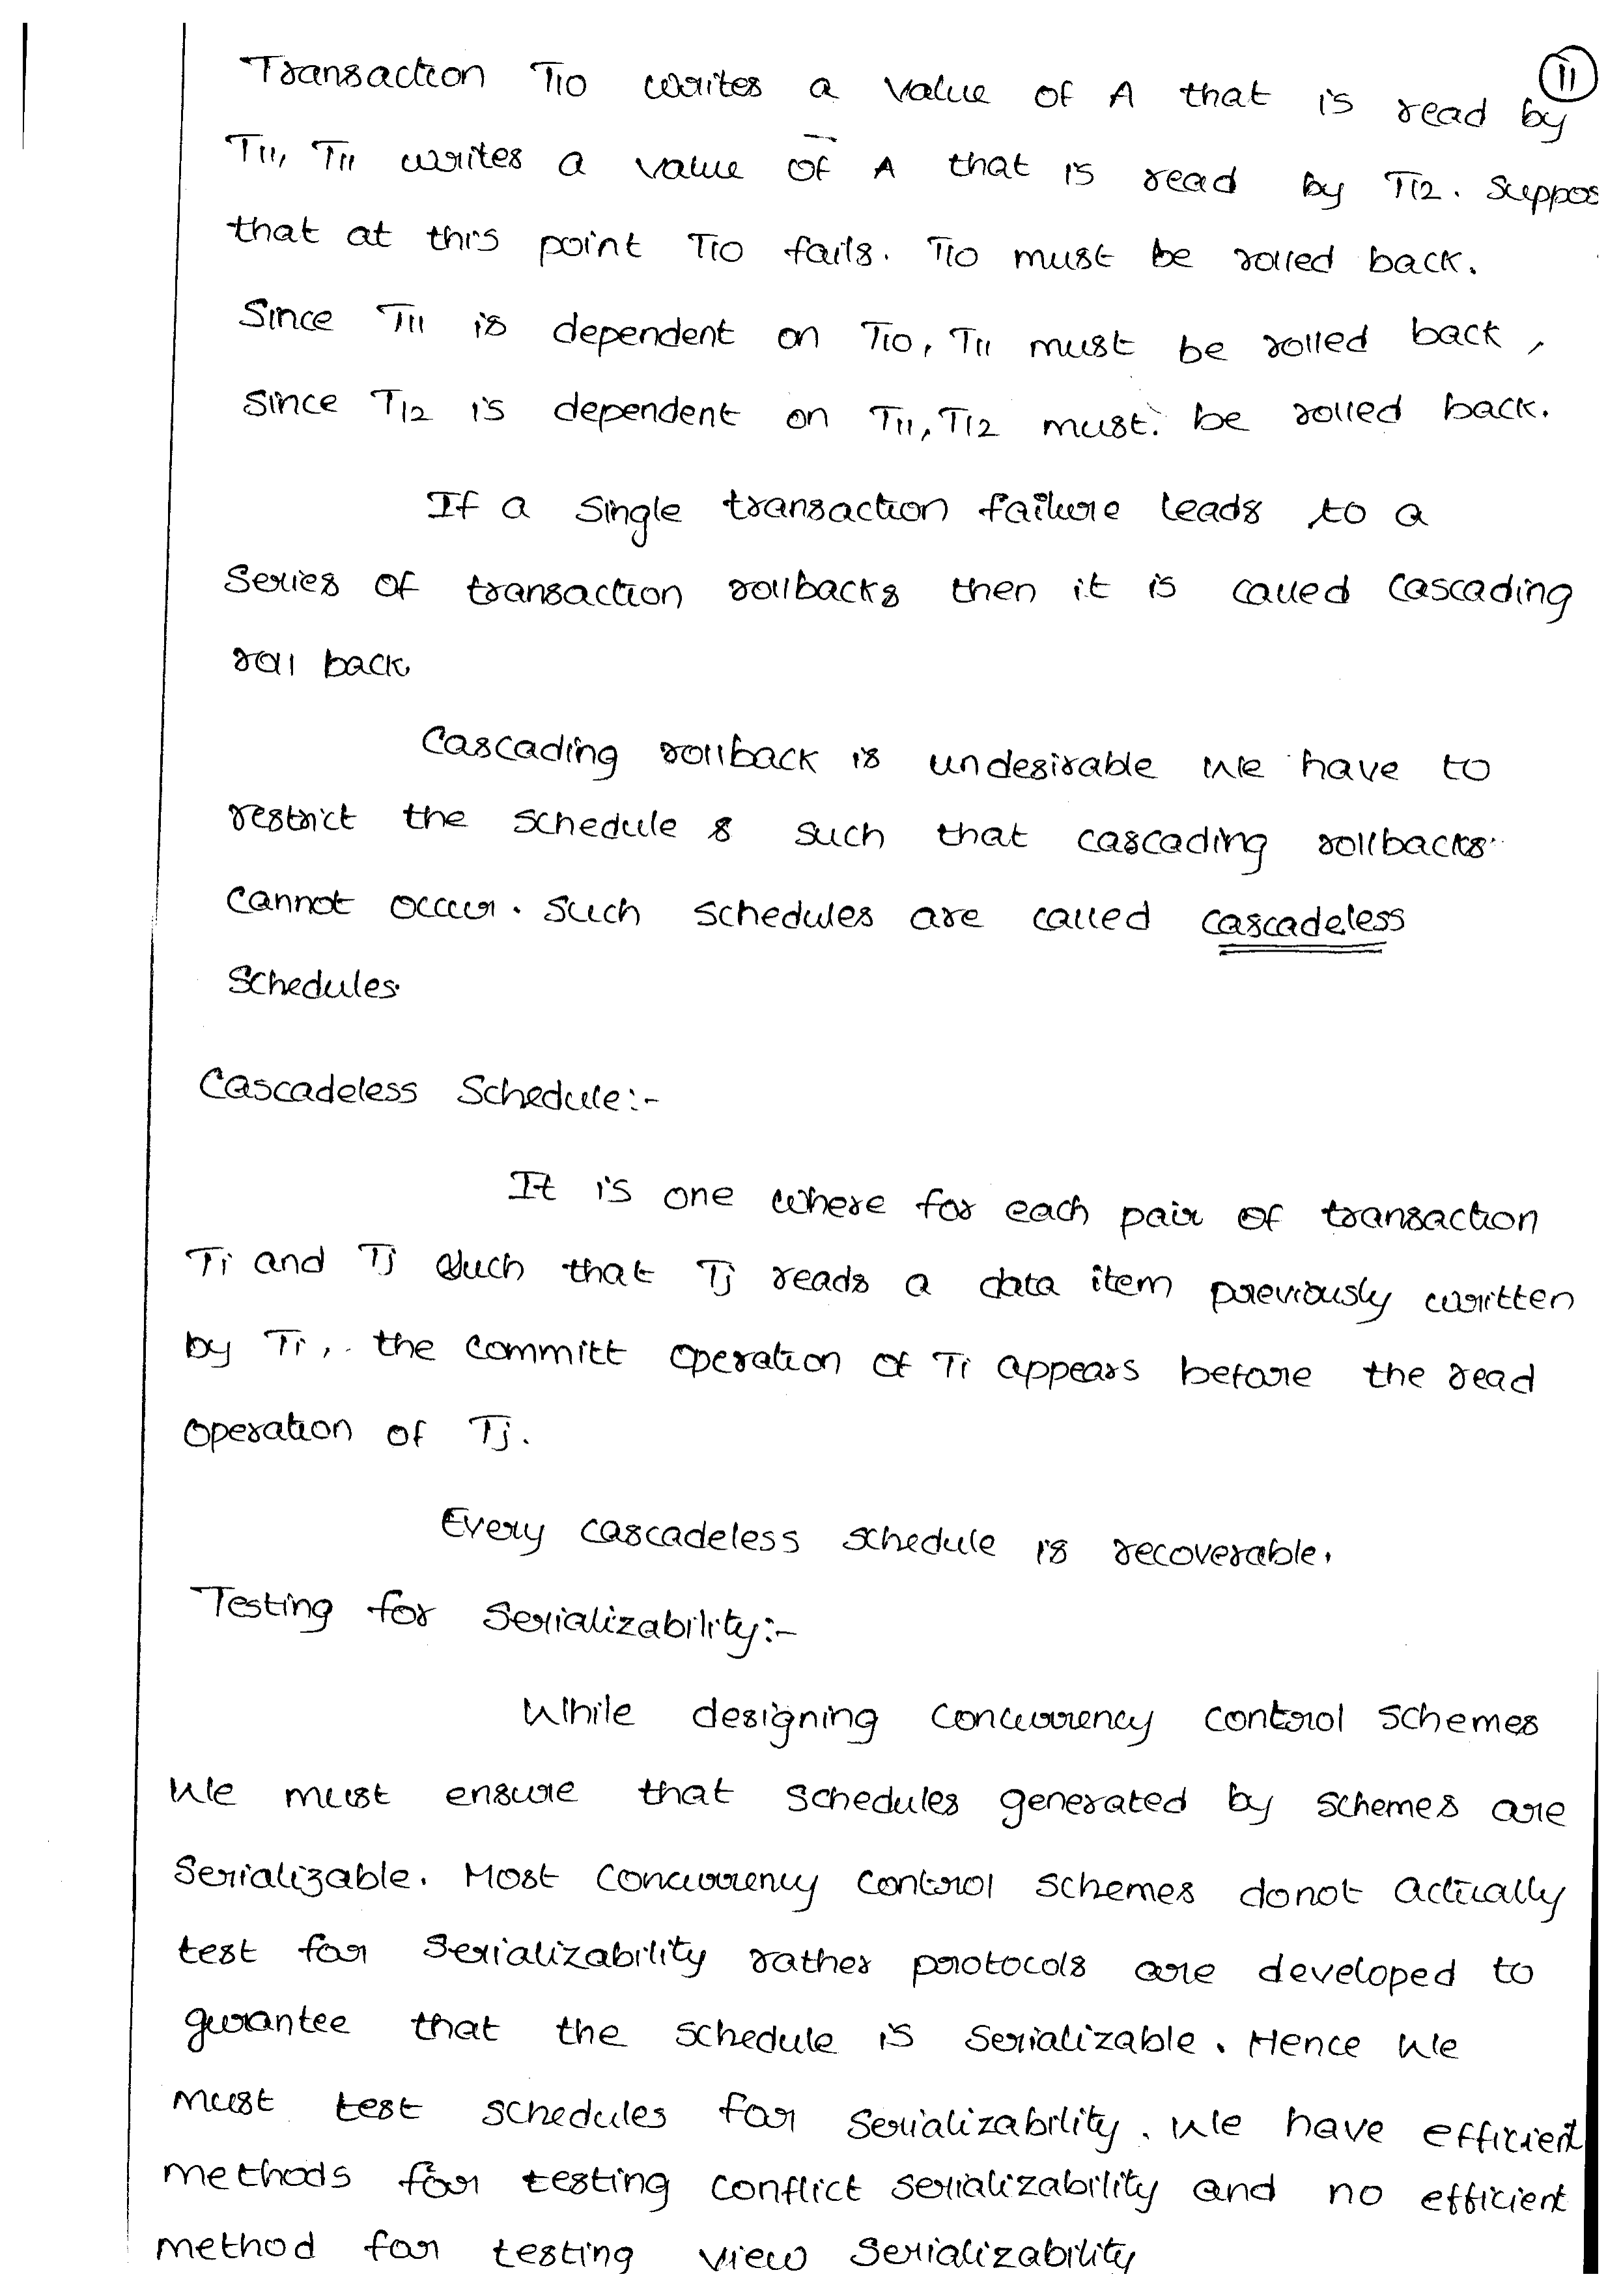 11
Transaction T10 writes a value of A that is read by
T11, T11 writes a value of A that is read by T12. Suppos
that at this point T10 fails. T10 must be rolled back.
Since T11 is dependent on T10, T11 must be rolled back,
Since T12 is dependent on T11, T12 must be rolled back.
If a single transaction failure leads to a
Series of transaction rollbacks then it is called cascading
roll back
Cascading rollback is undesirable we have to
restrict the schedule s such that cascading rollbacks
cannot occur. Such schedules are called cascadeless
Schedules.
Cascadeless Schedule:-
It is one where for each pair of transaction
Ti and Tj such that Tj reads a data item previously written
by Ti, the committ operation of Ti appears before the read
operation of Tj.
Every cascadeless schedule is recoverable.
Testing for Serializability:-
While designing concurrency control schemes
we must ensure that schedules generated by schemes are
Serializable. Most concurrency control schemes donot actually
test for Serializability rather protocols are developed to
gurantee that the schedule is Serializable. Hence we
must test schedules for Serializability. we have efficient
methods for testing conflict serializability and no efficient
method for testing view Serializability